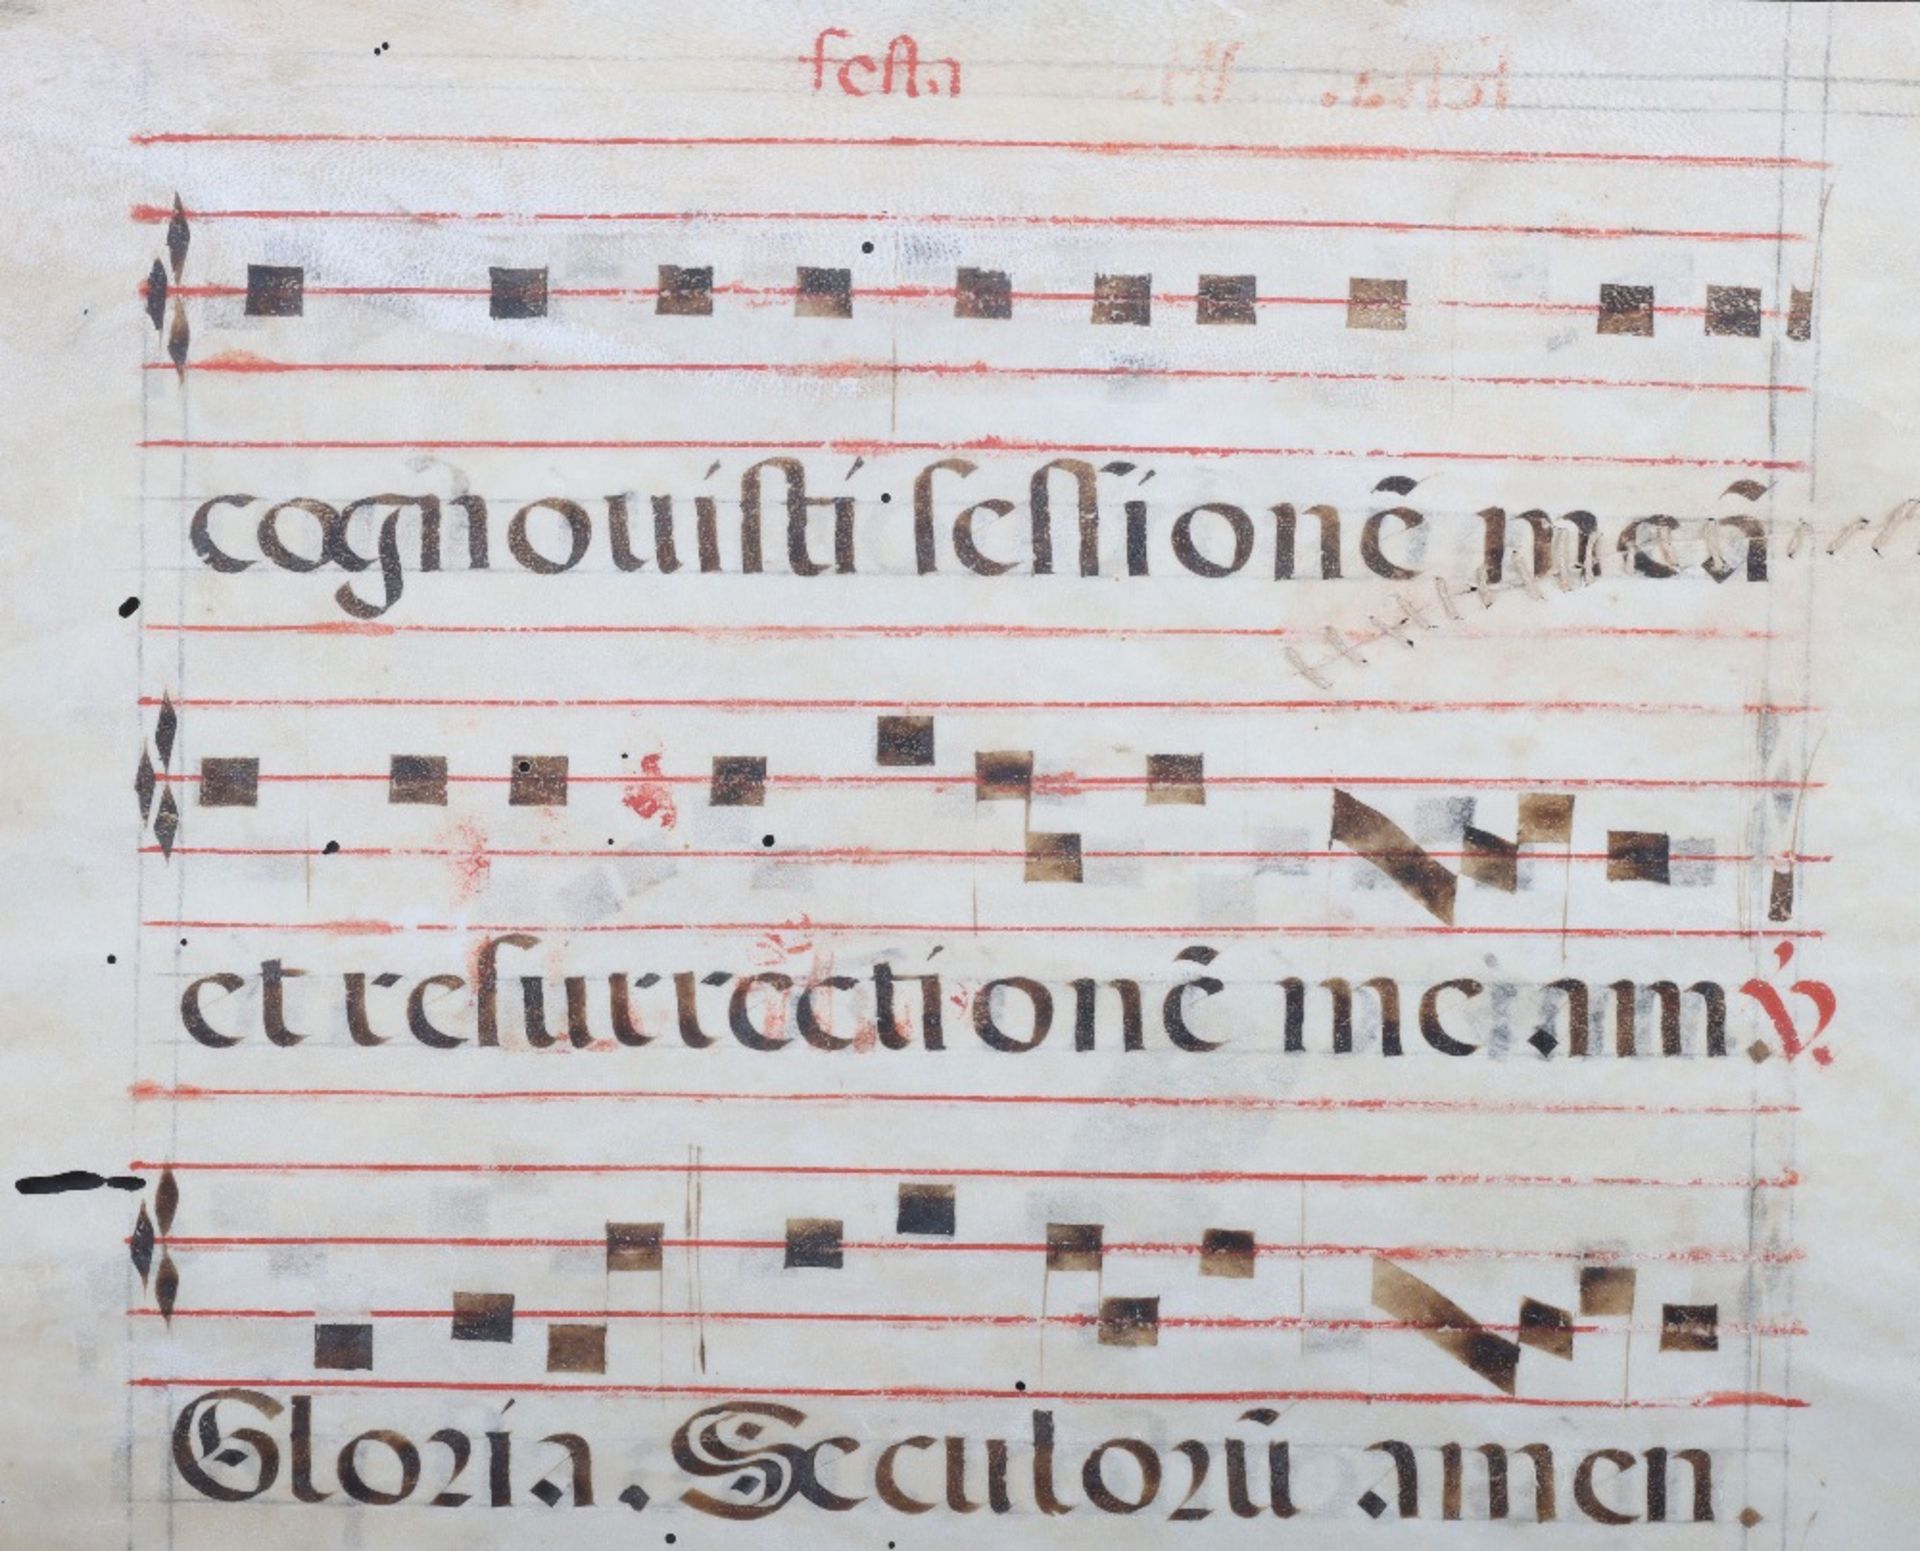 festa
cognouisti sessionē meā
et resurrectionē meam. ℣.
Gloria. Seculorū amen.